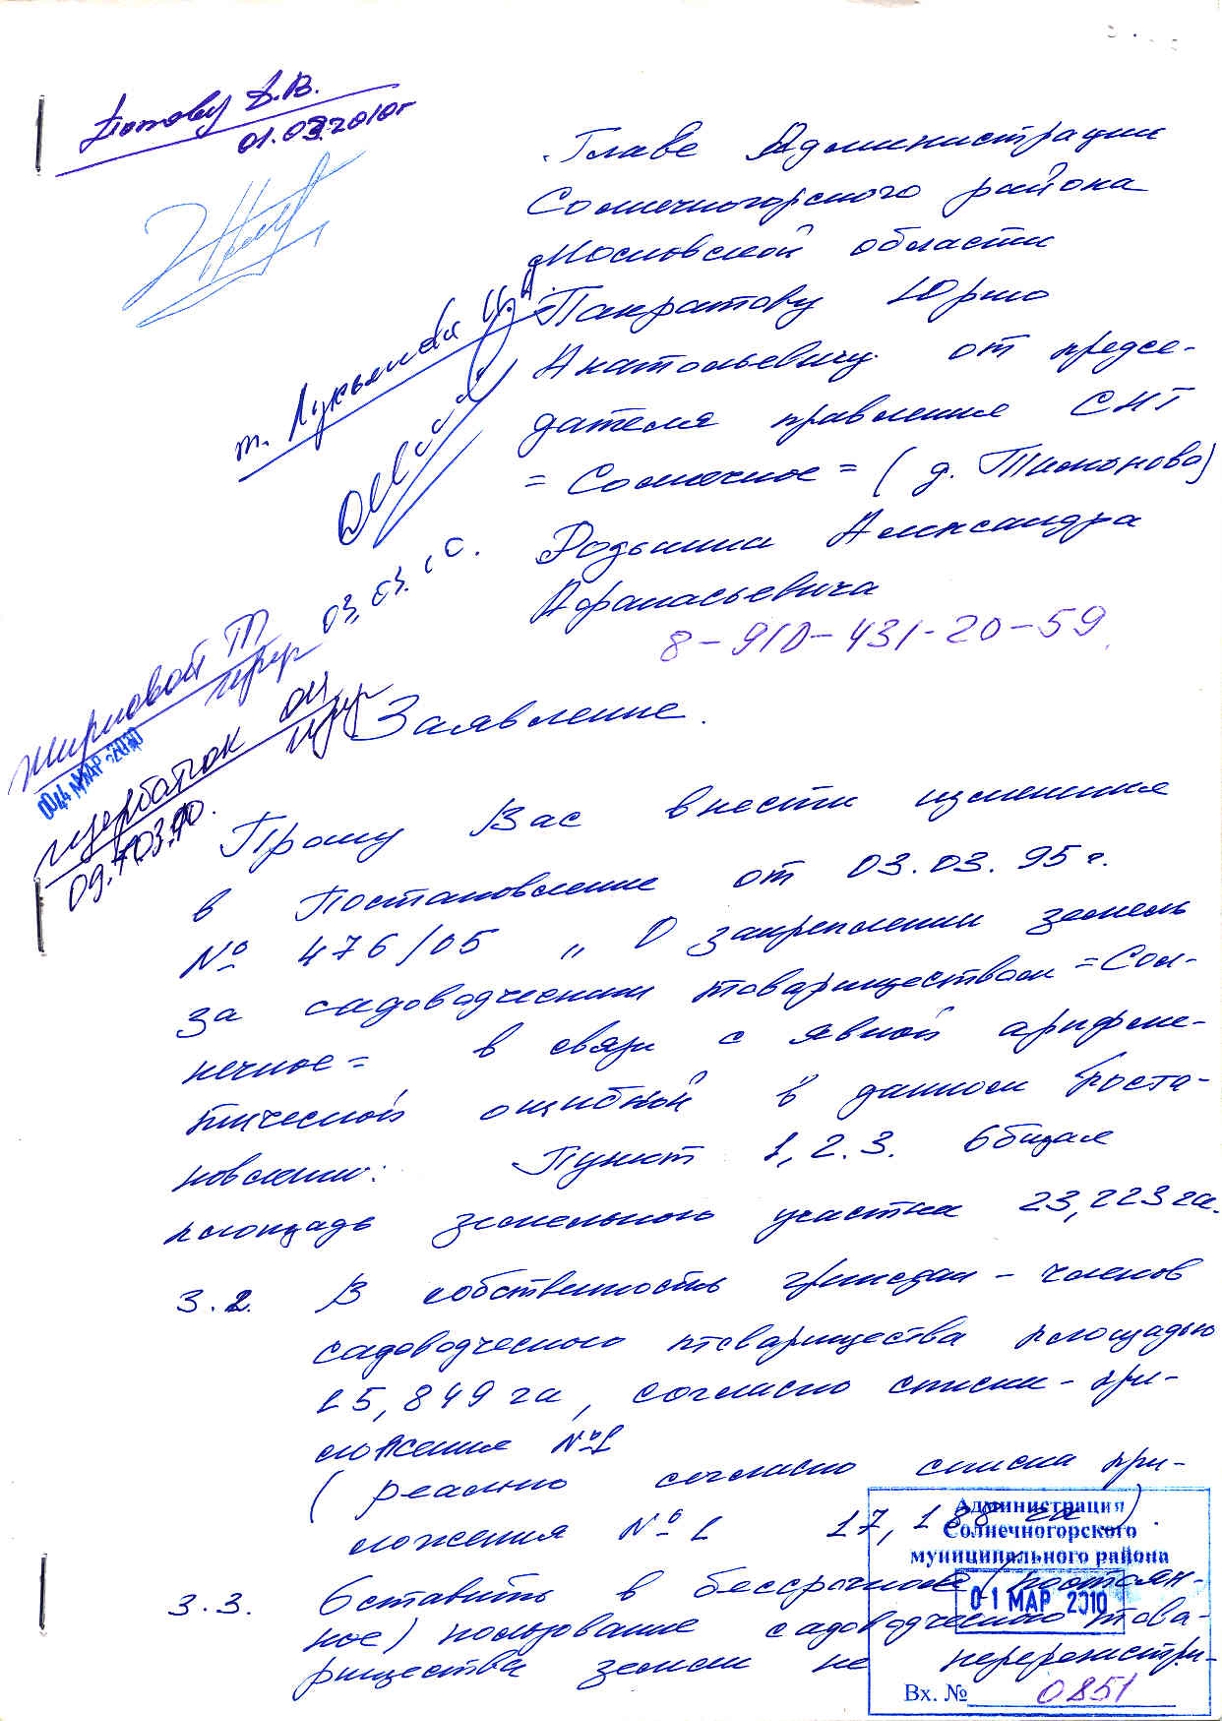 Попову Д.В.
01.03.2010г
Главе Администрации
Солнечногорского района
Московской области
Панкратову Юрию
Анатольевичу от предсе-
дателя правления СНТ
= Солнечное = (д. Тимоново)
Родькина Александра
Афанасьевича
8-910-431-20-59
т. Лукьянова И.А.
03.03.10.
Жирновой
04 МАР 2010
Щербатюк ОН
09.03.10.
Заявление.
Прошу Вас внести изменения
в Постановление от 03.03.95г.
№ 476/05 „О закреплении земель
за садоводческим товариществом =Сол-
нечное= в связи с явной арифме-
тической ошибкой в данном Поста-
новлении: Пункт 1, 2.3. Общая
площадь земельного участка 23,223 га.
3.2. В собственность граждан - членов
садоводческого товарищества площадью
15,849 га, согласно списка - при-
ложения №1
(реально согласно списка при-
ложения №1 17,188 га).
3.3. Оставить в бессрочное (постоян-
ное) пользование садоводческого това-
рищества земли не перерегистри-
Администрация
Солнечногорского
муниципального района
01 МАР 2010
Вх. № 0851